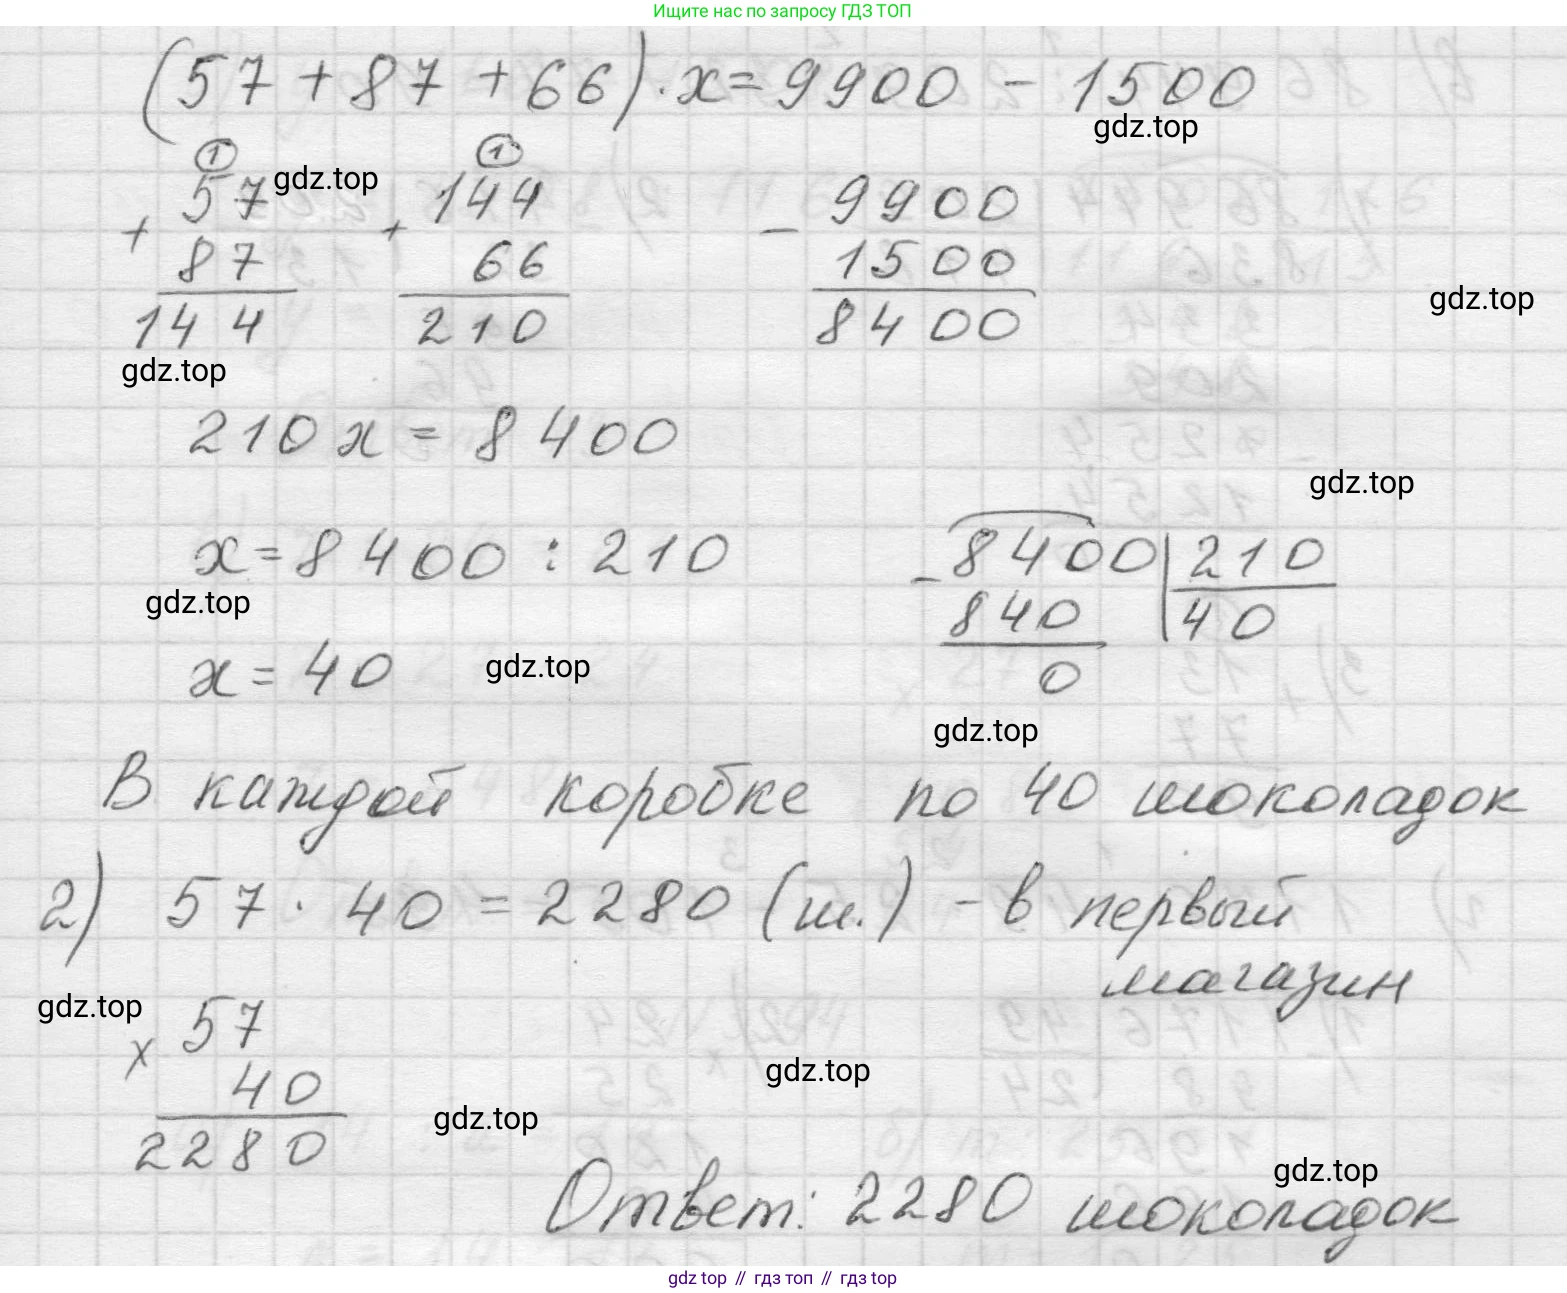 Ищите нас по запросу ГДЗ ТОП
(57 + 87 + 66) · x = 9900 - 1500
gdz.top
1
57
+
87
144
gdz.top
1
144
+
66
210
9900
-
1500
8400
gdz.top
gdz.top
210x = 8400
gdz.top
x = 8400 : 210
8400 | 210
- 840 | 40
0
gdz.top
x = 40
gdz.top
gdz.top
В каждой коробке по 40 шоколадок
2) 57 · 40 = 2280 (ш.) - в первый
магазин
gdz.top
57
x
40
2280
gdz.top
gdz.top
gdz.top
Ответ: 2280 шоколадок
gdz top // гдз топ // гдз top